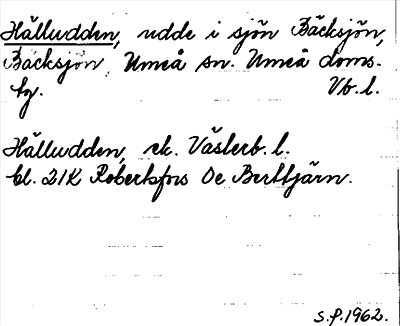 Hälludden, udde i sjön Bäcksjön,
Bäcksjön, Umeå sn. Umeå doms-
hg. Vb. l.
Hälludden, ek. Västerb. l.
bl. 21K Robertsfors Oe Berttjärn.
S.P. 1962.